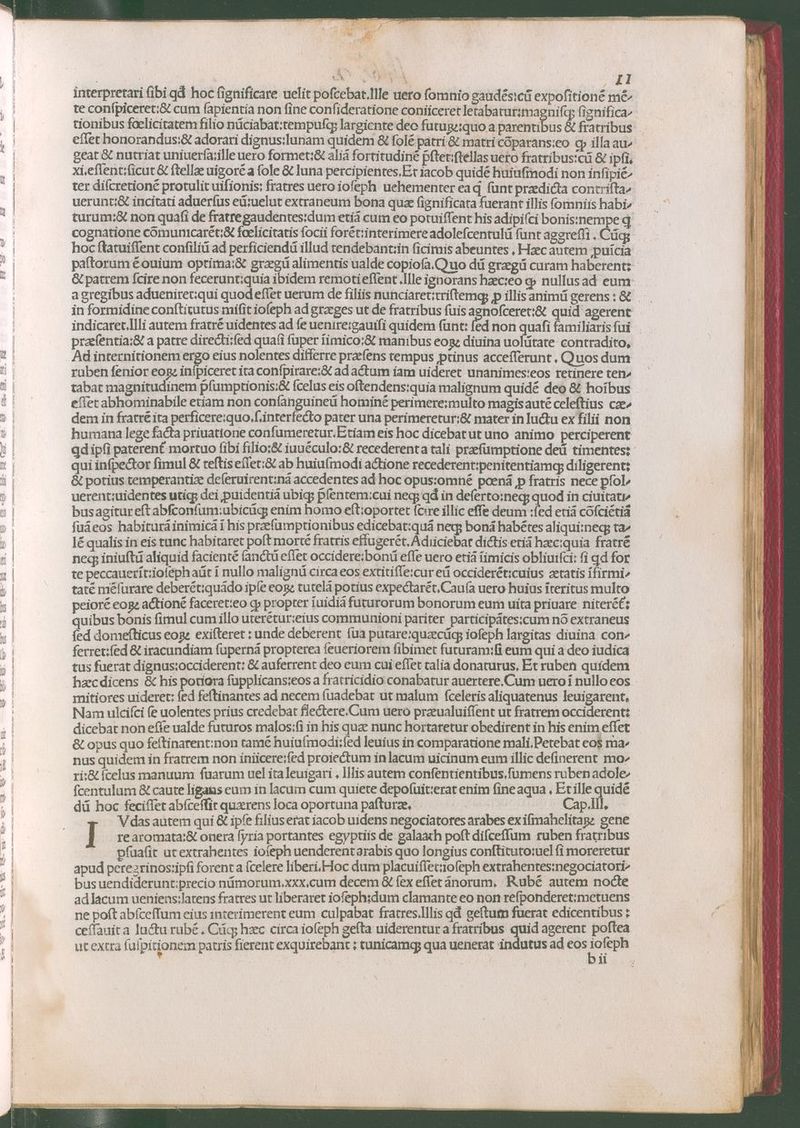 11
interpretari sibi qđ hoc significare uelit poscebat.Ille uero somnio gaudẽs:cũ expositionẽ mẽ-
te conspiceret:& cum sapientia non sine consideratione coniiceret letabatur:magnisqꝫ significa-
tionibus fœlicitatem filio nũciabat:tempusqꝫ largiente deo futuꝝ:quo a parentibus & fratribus
esset honorandus:& adorari dignus:lunam quidem & solẽ patri & matri cõparans:eo ꝙ illa au-
geat & nutriat uniuersa:ille uero formet:& aliã fortitudinẽ p̃stet:stellas uero fratribus:cũ & ipsi,
xi.essent:sicut & stellæ uigorẽ a sole & luna percipientes.Et iacob quidẽ huiusmodi non insipiẽ-
ter discretionẽ protulit uisionis: fratres uero ioseph uehementer ea q̃ sunt prædicta contrista-
uerunt:& incitati aduersus eũ:uelut extraneum bona quæ significata fuerant illis somniis habi-
turum:& non quasi de fratre gaudentes:dum etiã cum eo potuissent his adipisci bonis:nempe q
cognatione cõmunicarẽt:& fœlicitatis socii forẽt:interimere adolescentulũ sunt aggressi . Cũqꝫ
hoc statuissent consiliũ ad perficiendũ illud tendebant:in sicimis abeuntes . Hæc autem ꝓuicia
pastorum & ouium optima:& grægũ alimentis ualde copiosa.Quo dũ grægũ curam haberent:
& patrem scire non fecerunt:quia ibidem remoti essent .Ille ignorans hæc:eo ꝙ nullus ad eum
a gregibus adueniret:qui quod esset uerum de filiis nunciaret:tristemqꝫ ꝓ illis animũ gerens : &
in formidine constitutus misit ioseph ad græges ut de fratribus suis agnosceret:& quid agerent
indicaret.Illi autem fratrẽ uidentes ad se uenire:gauisi quidem sunt: sed non quasi familiaris sui
præsentia:& a patre directi:sed quasi super ĩimico:& manibus eoꝝ diuina uolũtate contradito.
Ad internitionem ergo eius nolentes differre præsens tempus ꝓtinus accesserunt . Quos dum
ruben senior eoꝝ inspiceret ita conspirare:& ad actum iam uideret unanimes:eos retinere ten-
tabat magnitudinem p̃sumptionis:& scelus eis ostendens:quia malignum quidẽ deo & hoĩbus
esset abhominabile etiam non consanguineũ hominẽ perimere:multo magis autẽ celestius cæ-
dem in fratrẽ ita perficere:quo.s.interfecto pater una perimeretur:& mater in luctu ex filii non
humana lege facta priuatione consumeretur.Etiam eis hoc dicebat ut uno animo perciperent
qđ ipsi paterent̃ mortuo sibi filio:& iuuẽculo:& recederent a tali præsumptione deũ timentes:
qui inspector simul & testis esset:& ab huiusmodi actione recederent:penitentiamqꝫ diligerent:
& potius temperantiæ deseruirent:nã accedentes ad hoc opus:omnẽ pœnã ꝓ fratris nece p̃sol-
uerent:uidentes utiqꝫ dei ꝓuidentiã ubiqꝫ p̃sentem:cui neqꝫ qđ in deserto:neqꝫ quod in ciuitati-
bus agitur est absconsum:ubicũqꝫ enim homo est:oportet scire illic esse deum :sed etiã cõsciẽtiã
suã eos habiturã inimicã ĩ his præsumptionibus edicebat:quã neqꝫ bonã habẽtes aliqui:neqꝫ ta-
lẽ qualis in eis tunc habitaret post mortẽ fratris effugerẽt.Adiiciebat dictis etiã hæc:quia fratrẽ
neqꝫ iniustũ aliquid facientẽ sanctũ esset occidere:bonũ esse uero etiã ĩimicis obliuisci: si qđ for
te peccauerĩt:ioseph aũt ĩ nullo malignũ circa eos extitisse:cur eũ occiderẽt:cuius ætatis ĩfirmi-
tatẽ mẽsurare deberẽt:quãdo ipse eoꝝ tutelã potius expectarẽt.Causa uero huius ĩteritus multo
peiorẽ eoꝝ actionẽ faceret:eo ꝙ propter ĩuidiã futurorum bonorum eum uita priuare niterẽt̃:
quibus bonis simul cum illo uterẽtur:eius communioni pariter participãtes:cum nõ extraneus
sed domesticus eoꝝ existeret : unde deberent sua putare:quæcũqꝫ ioseph largitas diuina con-
ferret:sed & iracundiam supernã propterea seueriorem sibimet futuram:si eum qui a deo iudica
tus fuerat dignus:occiderent: & auferrent deo eum cui esset talia donaturus. Et ruben quidem
hæc dicens & his potiora supplicans:eos a fratricidio conabatur auertere.Cum uero ĩ nullo eos
mitiores uideret: sed festinantes ad necem suadebat ut malum sceleris aliquatenus leuigarent.
Nam ulcisci se uolentes prius credebat flectere.Cum uero præualuissent ut fratrem occiderent:
dicebat non esse ualde futuros malos:si in his quæ nunc hortaretur obedirent in his enim esset
& opus quo festinarent:non tamẽ huiusmodi:sed leuius in comparatione mali.Petebat eos ma-
nus quidem in fratrem non iniicere:sed proiectum in lacum uicinum eum illic desinerent mo-
ri:& scelus manuum suarum uel ita leuigari . Illis autem consentientibus,sumens ruben adole-
scentulum & caute ligans eum in lacum cum quiete deposuit:erat enim sine aqua . Et ille quidẽ
dũ hoc fecisset abscessit quærens loca oportuna pasturæ. Cap.III.
I Vdas autem qui & ipse filius erat iacob uidens negociatores arabes ex ismahelitaꝝ gene
re aromata:& onera syria portantes egyptiis de galaath post discessum ruben fratribus
p̃suasit ut extrahentes ioseph uenderent arabis quo longius constituto:uel si moreretur
apud peregrinos:ipsi forent a scelere liberi.Hoc dum placuisset:ioseph extrahentes:negociatori-
bus uendiderunt:precio nũmorum.xxx.cum decem & sex esset ãnorum. Rubẽ autem nocte
ad lacum ueniens:latens fratres ut liberaret ioseph:dum clamante eo non responderet:metuens
ne post abscessum eius interimerent eum culpabat fratres.Illis qđ gestum fuerat edicentibus :
cessauit a luctu rubẽ . Cũqꝫ hæc circa ioseph gesta uiderentur a fratribus quid agerent postea
ut extra suspitionem patris fierent exquirebant : tunicamqꝫ qua uenerat indutus ad eos ioseph
b ii